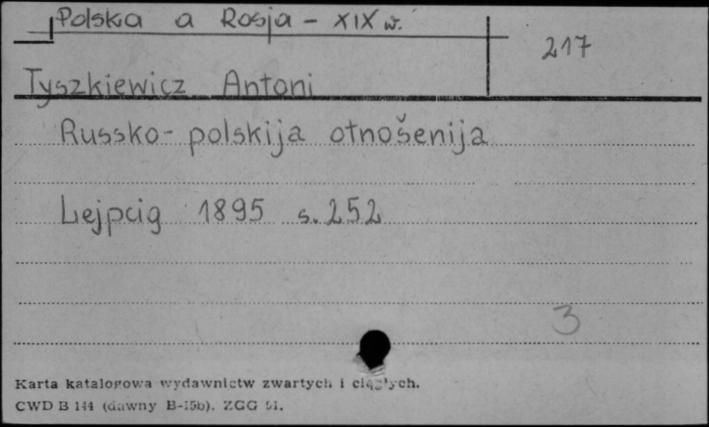 Polska a Rosja - XIX w.
217
Tyszkiewicz Antoni
Russko-polskija otnošenija
Lejpcig 1895 s. 252
3
Karta katalogowa wydawnictw zwartych i ciągłych.
CWD B 144 (dawny B-15b). ZGG 51.